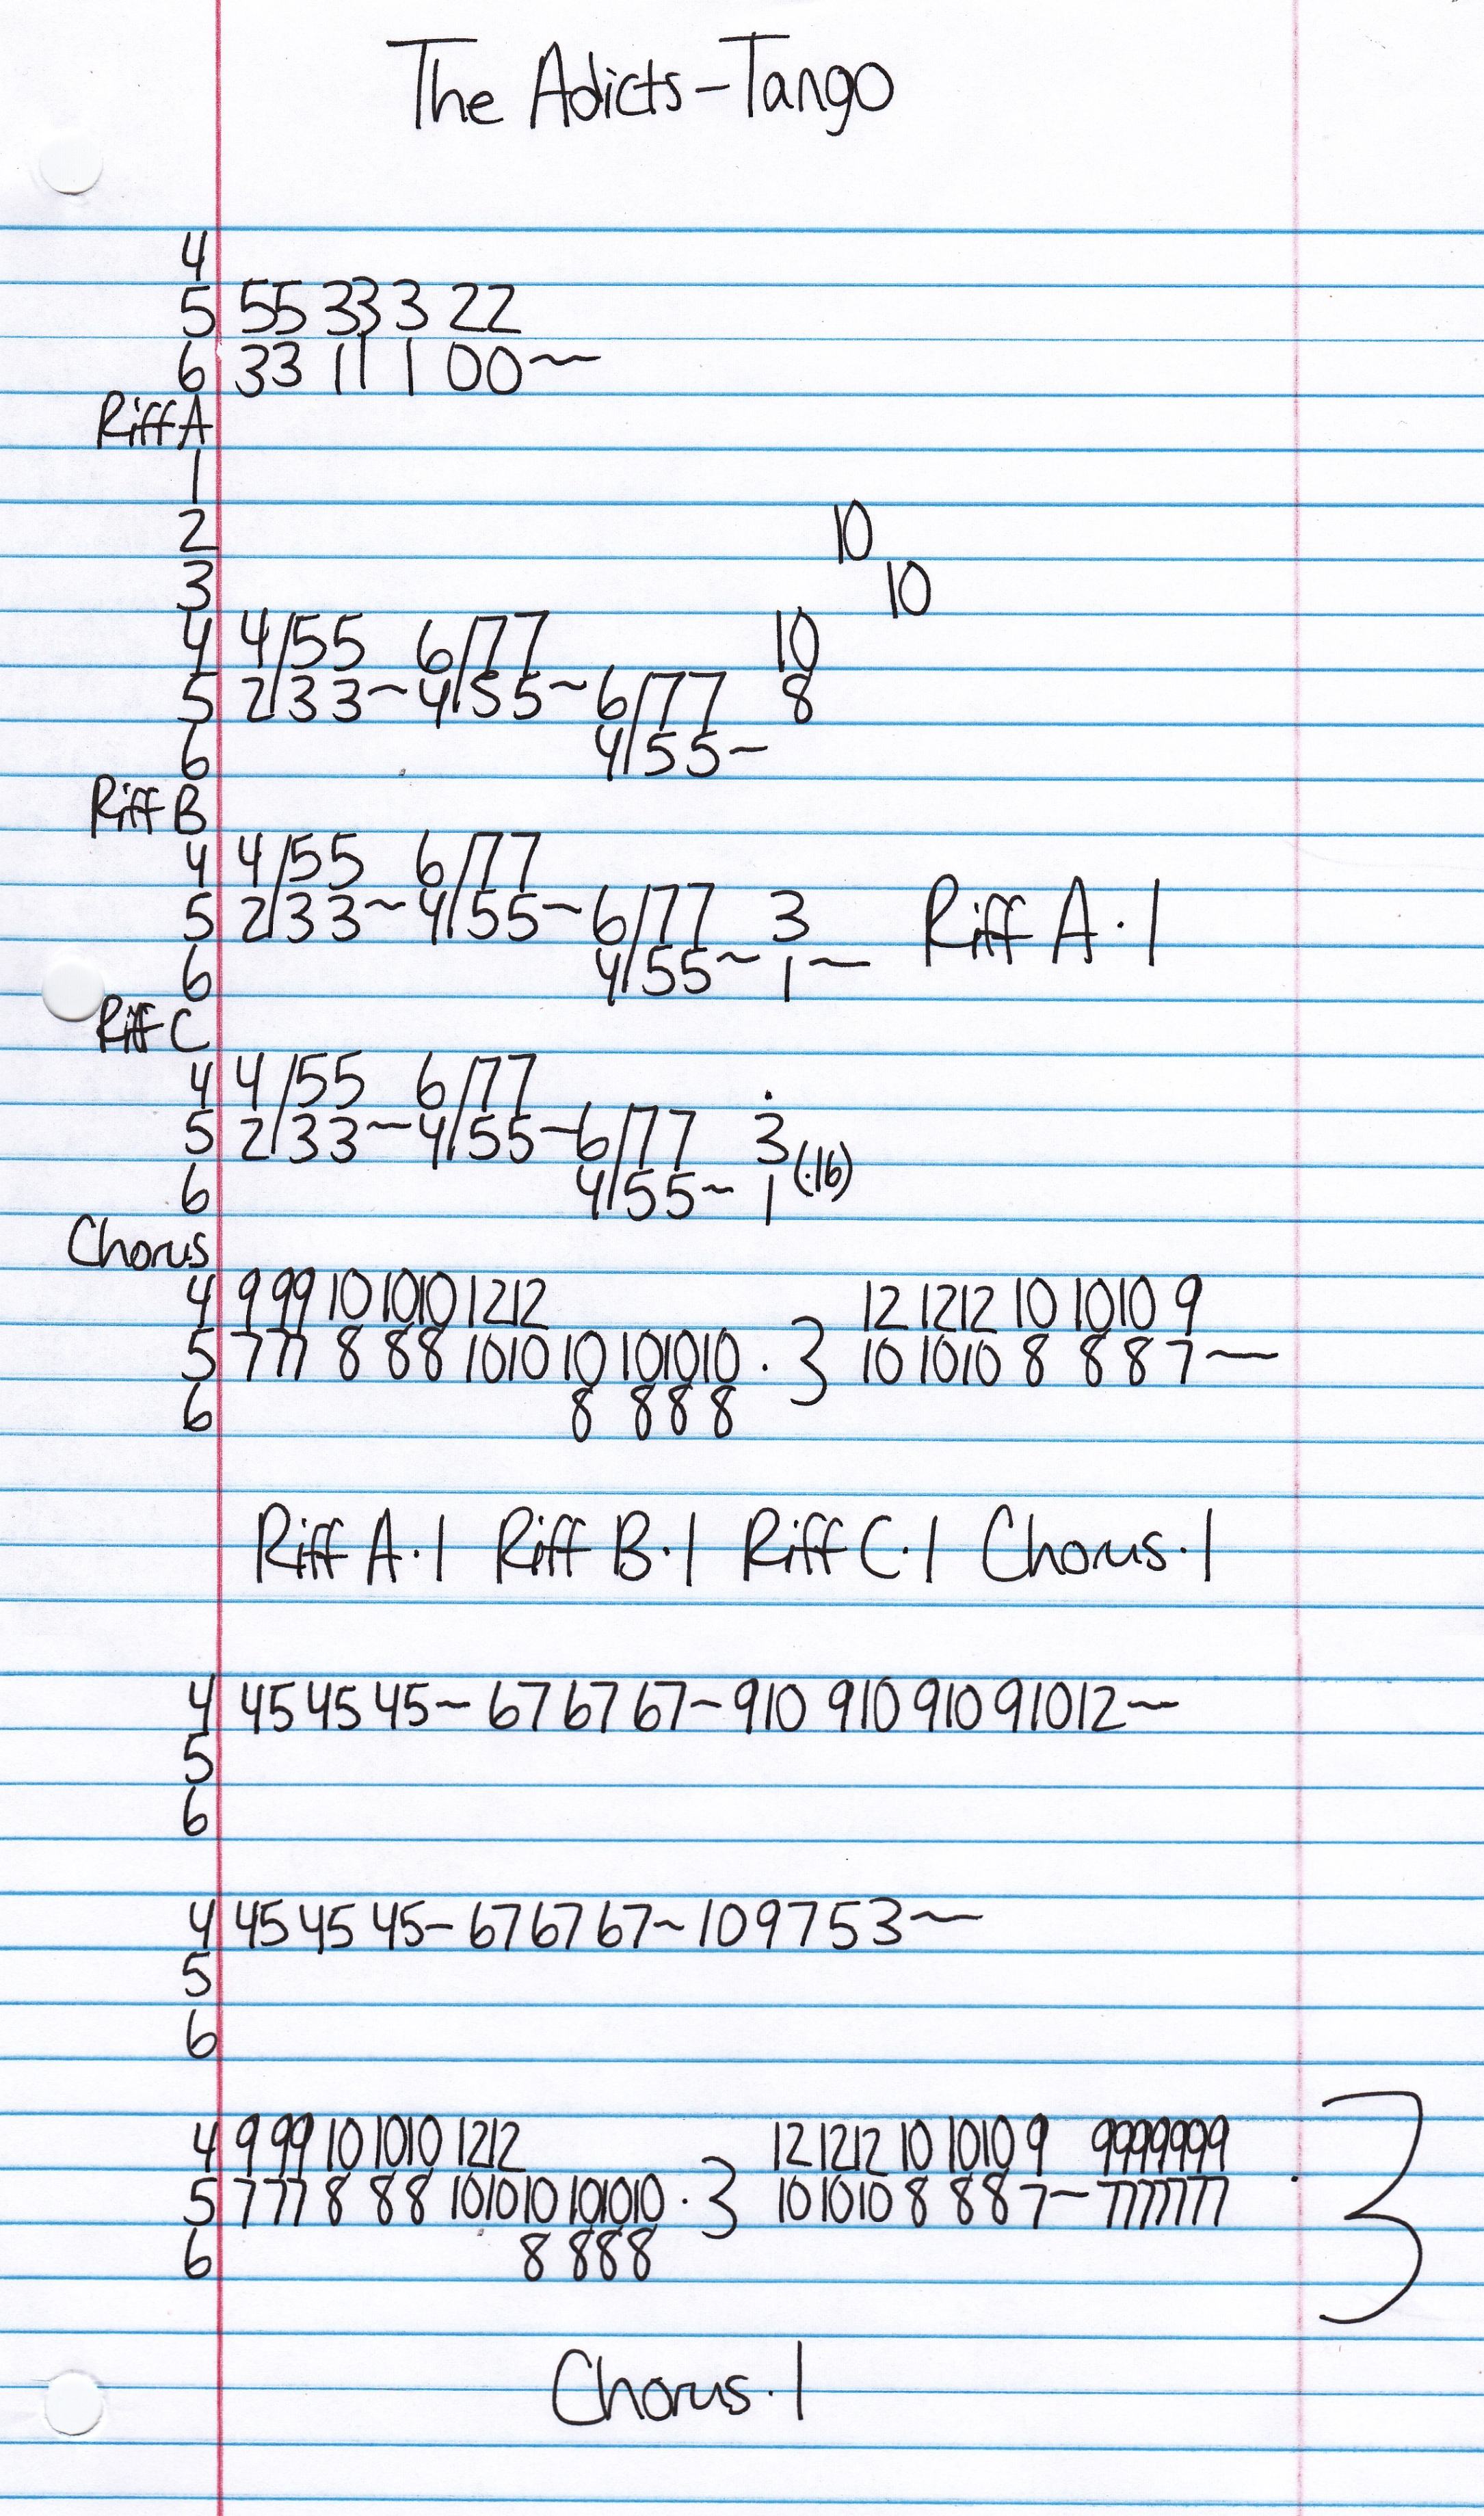 The Adicts-Tango
4
5 55 33 3 22
6 33 11 1 00~
Riff A
1
2 10
3 10
4 4/55 6/77 10
5 2/33~4/55~6/77 8
6 4/55~
Riff B
4 4/55 6/77
5 2/33~4/55~6/77 3 Riff A·1
6 4/55~1~
Riff C
4 4/55 6/77
5 2/33~4/55~6/77 3 (·16)
6 4/55~1
Chorus
4 9 99 10 1010 1212 12 1212 10 1010 9
5 7 77 8 88 1010 10 101010 · 3 10 1010 8 88 7~
6 8 888
Riff A·1 Riff B·1 Riff C·1 Chorus·1
4 45 45 45~ 67 67 67~910 910 910 91012~
5
6
4 45 45 45~ 67 67 67~109753~
5
6
4 9 99 10 1010 1212 12 1212 10 1010 9 9999999 · 3
5 7 77 8 88 1010 10 101010 · 3 10 1010 8 88 7~7777777
6 8 888
Chorus·1